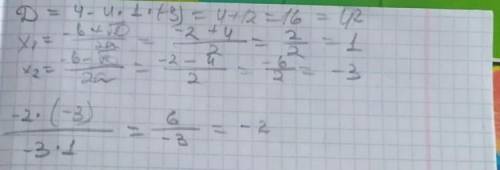 D = 4 - 4 · 1 · (-3) = 4 + 12 = 16 = 4²
x₁ = (-b + √D)/2a = (-2 + 4)/2 = 2/2 = 1
x₂ = (-b - √D)/2a = (-2 - 4)/2 = -6/2 = -3
(-2 · (-3))/(-3 · 1) = 6/-3 = -2